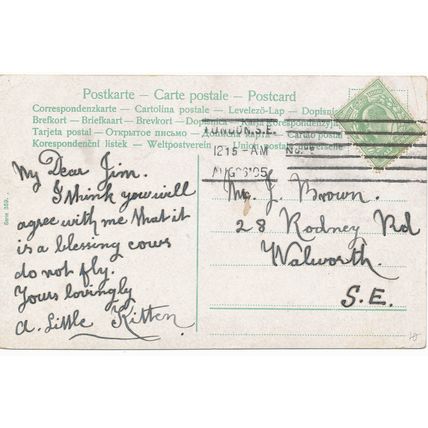 Postkarte — Carte postale — Postcard
Correspondenzkarte — Cartolina postale — Levelező-Lap — Dopisnice
Brefkort — Briefkaart — Brevkort — Dopisnica — Karta korespondencyjna
Tarjeta postal — Открытое письмо —
Korespondenční listek — Weltpostverein — Union postale universelle
LONDON. S.E.
12 15 - AM
AUG 26 05
My Dear Jim.
I think you will
agree with me that it
is a blessing cows
do not fly.
Yours lovingly
A. Little Kitten
Mr. J. Brown.
28 Rodney Rd
Walworth.
S.E.
Serie 359.